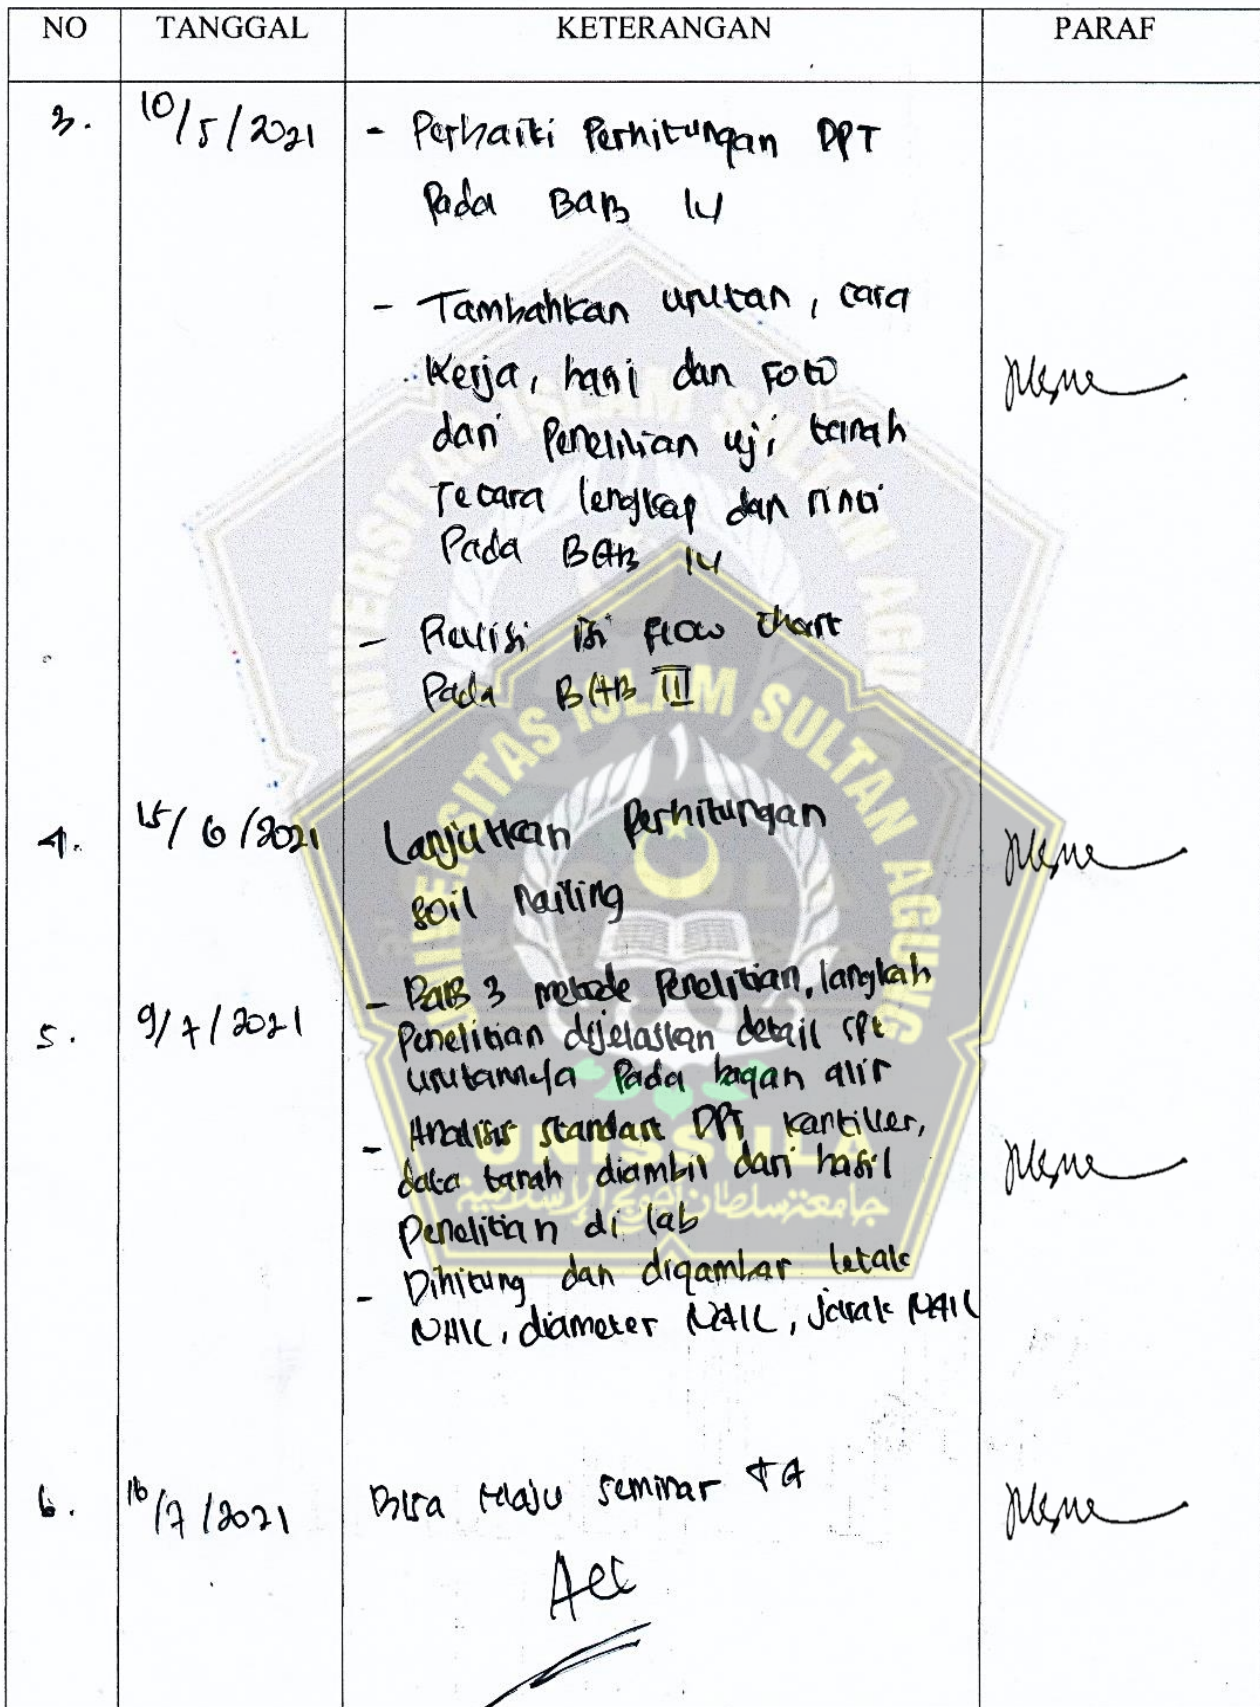 NO TANGGAL KETERANGAN PARAF
3. 10/5/2021 - Perbaiki Perhitungan DPT
Pada BAB IV
- Tambahkan urutan, cara
kerja, hasil dan Foto
dari Penelitian uji tanah
secara lengkap dan rinci
Pada BAB IV
- Revisi isi Flow Chart
Pada BAB III
4. 15/6/2021 Lanjutkan Perhitungan
soil nailing
- BAB 3 metode Penelitian, langkah
5. 9/7/2021 Penelitian dijelaskan detail spt
urutannya Pada bagan alir
- Analisis standart DPT kantiliver,
data tanah diambil dari hasil
Penelitian di lab
- Dihitung dan digambar letak
NAIL, diameter NAIL, jarak NAIL
6. 16/7/2021 Bisa Maju seminar TA
Acc
UNIVERSITAS ISLAM SULTAN AGUNG
UNISSULA
جامعة سلطان أجونج الإسلامية